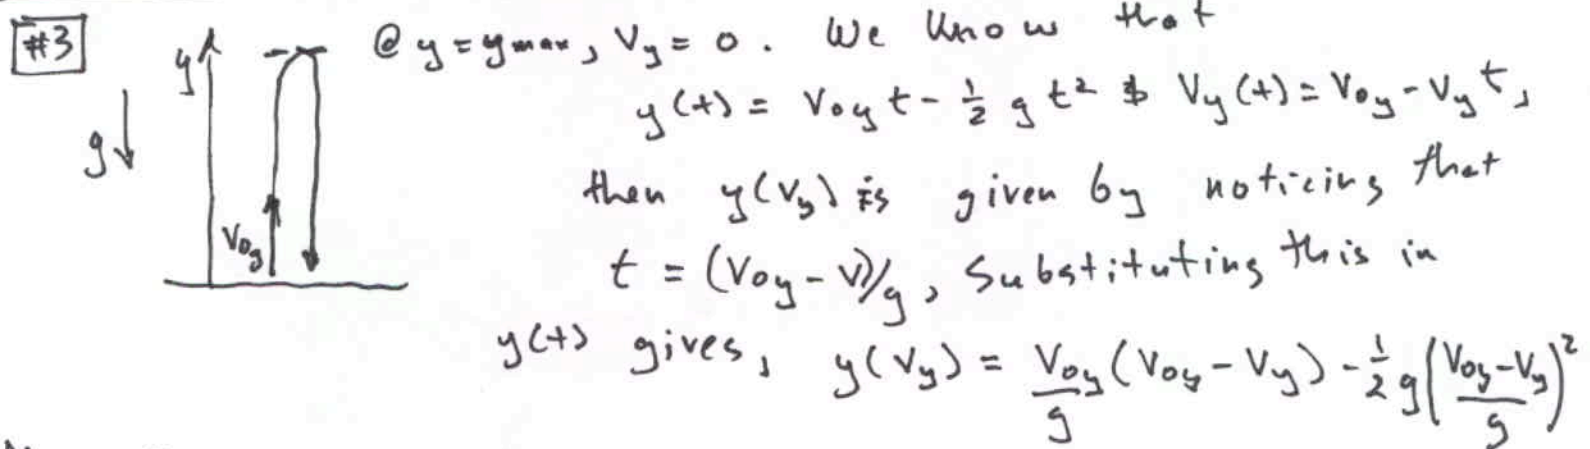 #3 @ y = ymax, Vy = 0. We know that
y(t) = Voy t - 1/2 g t² & Vy(t) = Voy - Vy t,
then y(Vy) is given by noticing that
t = (Voy - V)/g, Substituting this in
y(t) gives, y(Vy) = Voy/g (Voy - Vy) - 1/2 g ((Voy - Vy)/g)²
y
g
Voy